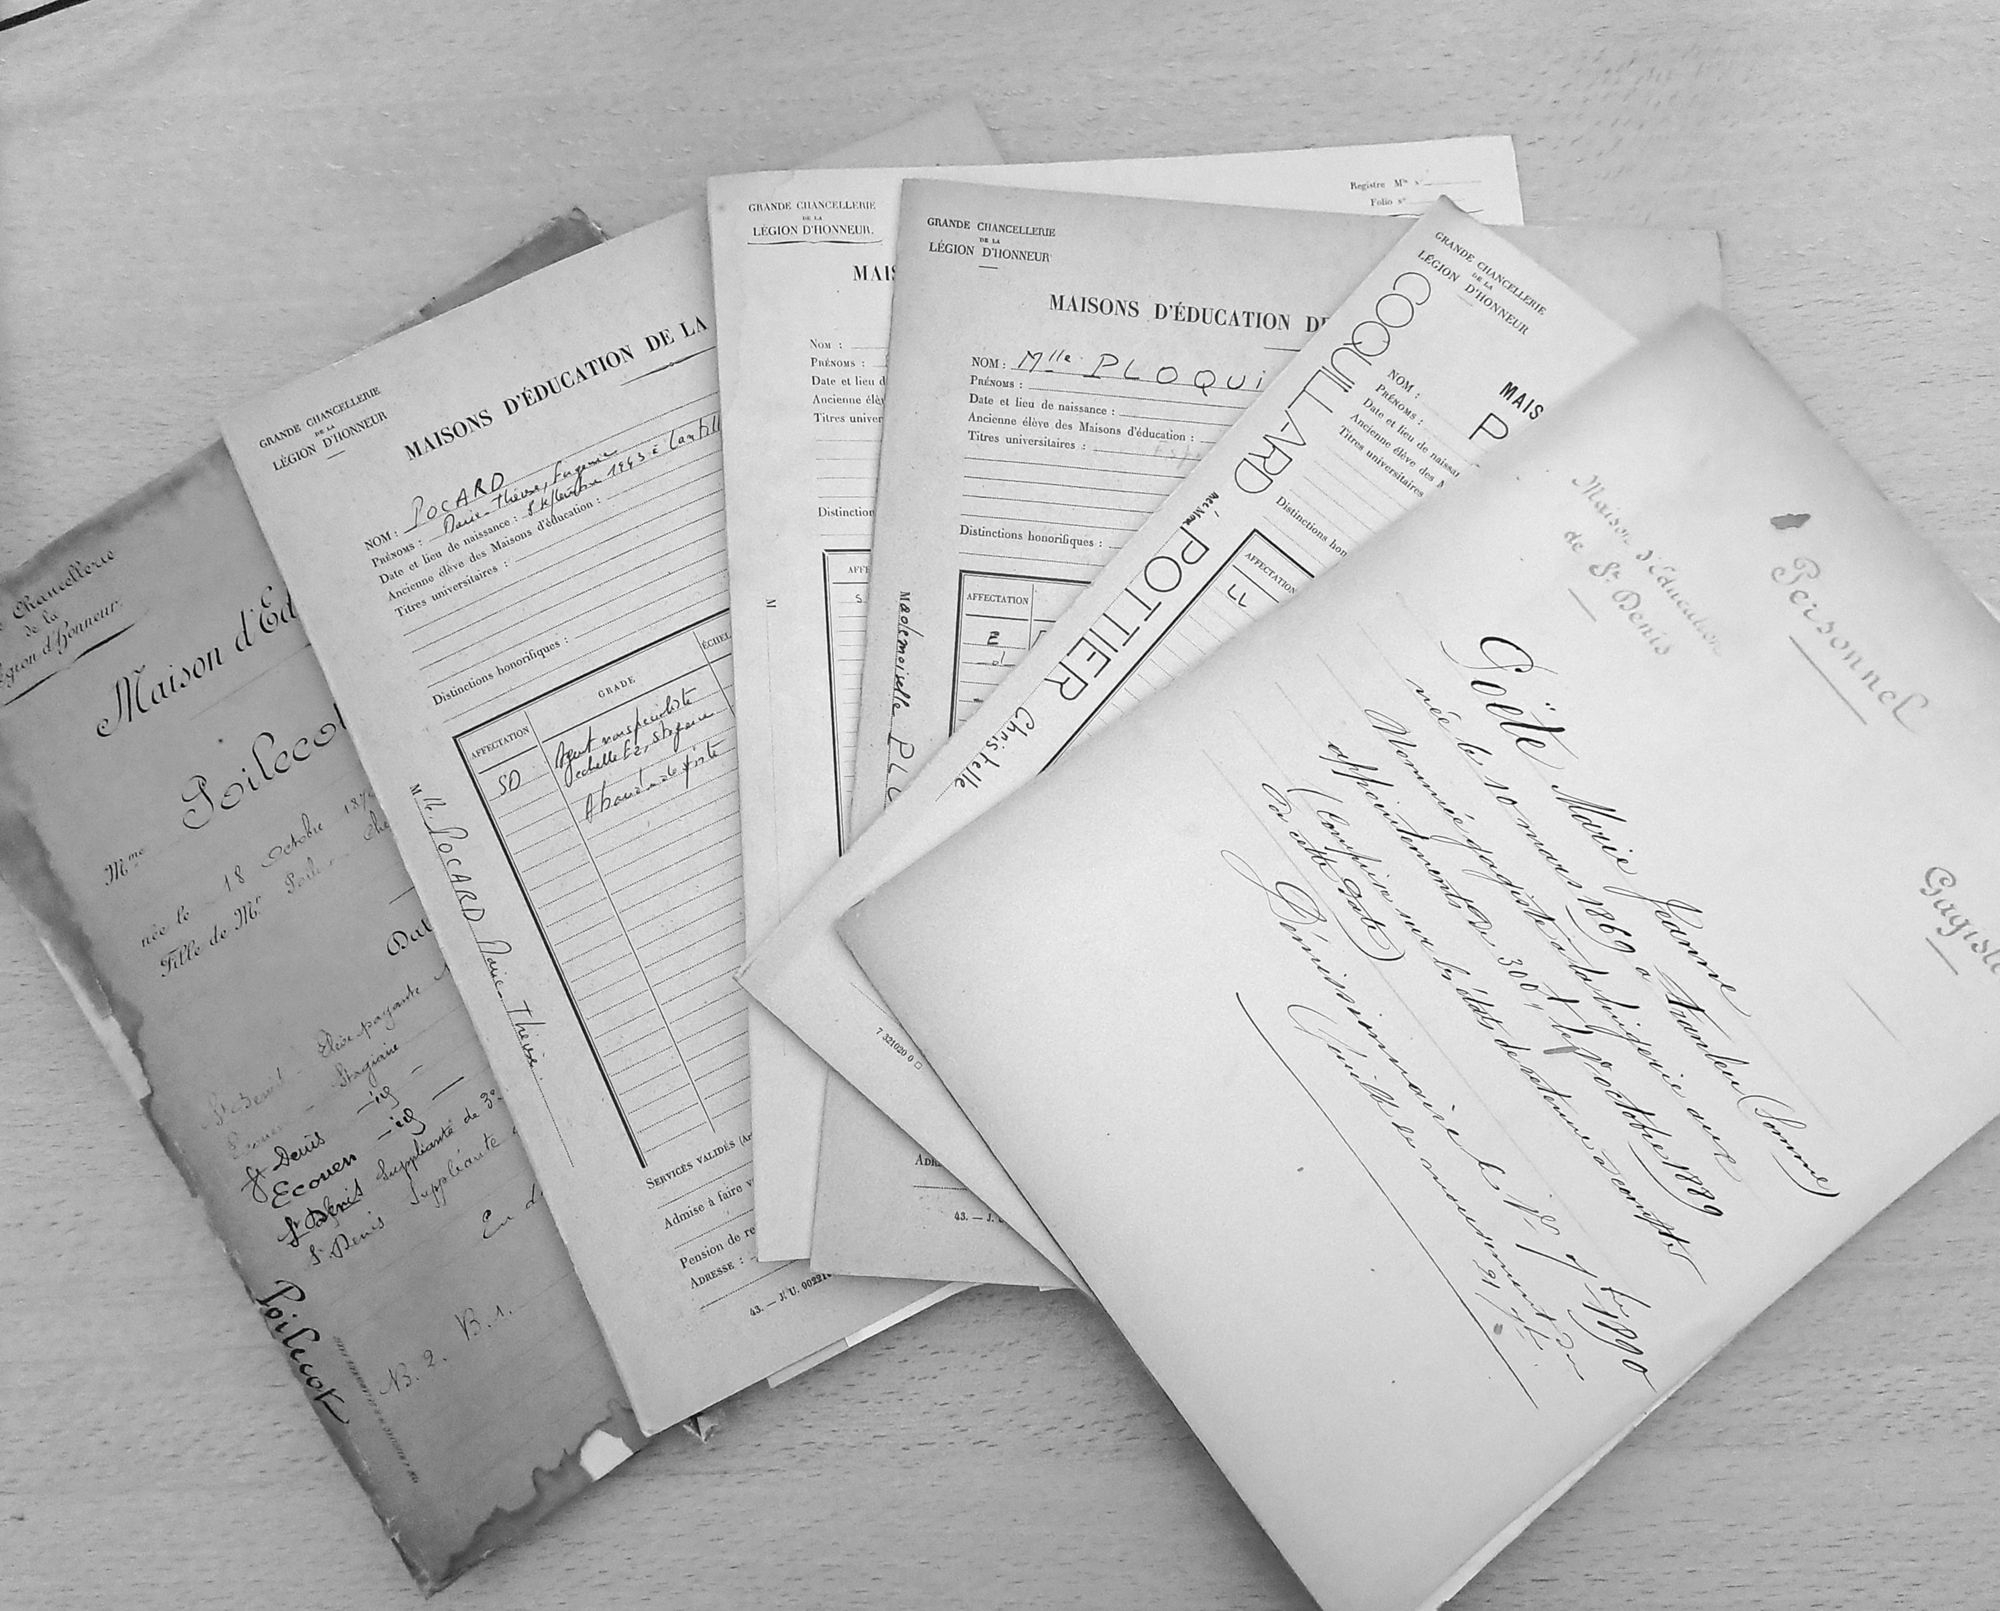 Chancellerie
de la
Légion d'Honneur.
Maison d'Éd
Mme Poilecot
née le 18 Octobre 187
Fille de Mr.
St Denis - Elève payante
Ecouen - Stagiaire
St Denis - id -
Ecouen - id -
St Denis Suppléante de 3e
St Denis Suppléante
En
B. 1.
B. 2.
Poilecot
GRANDE CHANCELLERIE
DE LA
LÉGION D'HONNEUR
MAISONS D'ÉDUCATION DE LA
NOM : POCARD
PRÉNOMS : Marie-Thérèse, Eugénie
Date et lieu de naissance : 8 septembre 1943 à
Ancienne élève des Maisons d'éducation :
Titres universitaires :
Distinctions honorifiques :
AFFECTATION
GRADE
ÉCHEL
SD
Agent non spécialiste
échelle E2, stagiaire
Abandon de poste
Mlle POCARD Marie-Thérèse.
SERVICES VALIDÉS (Ar
Admise à faire v
Pension de re
ADRESSE :
43. — J. U. 90221
GRANDE CHANCELLERIE
DE LA
LÉGION D'HONNEUR.
Registre Mle n°
Folio n°
MAIS
NOM :
PRÉNOMS :
Date et lieu d
Ancienne élè
Titres univer
Distinction
AFFE
S
M
GRANDE CHANCELLERIE
DE LA
LÉGION D'HONNEUR
MAISONS D'ÉDUCATION DE
NOM : Mlle PLOQUI
PRÉNOMS :
Date et lieu de naissance :
Ancienne élève des Maisons d'éducation :
Titres universitaires :
Distinctions honorifiques :
AFFECTATION
E
Mademoiselle PLO
ADR
43. — J.
GRANDE CHANCELLERIE
DE LA
LÉGION D'HONNEUR
MAIS
COQUILLARD
née Mme POTTIER Christelle
NOM : P
PRÉNOMS :
Date et lieu de naissa
Ancienne élève des M
Titres universitaires
Distinctions hon
AFFECTATION
7 321020 0
Maison d'éducation
de St Denis
Personnel
Gagiste
Goëte Marie Jeanne
née le 10 mars 1869 à Trambleu (Somme)
Nommée gagiste à la lingerie aux
appointements de 300f le 1er octobre 1889
(Comprise sur les états de retenue à compter
de cette date)
Démissionnaire le 1er 7bre 1890
(Feuille de mouvement du
21 7bre)